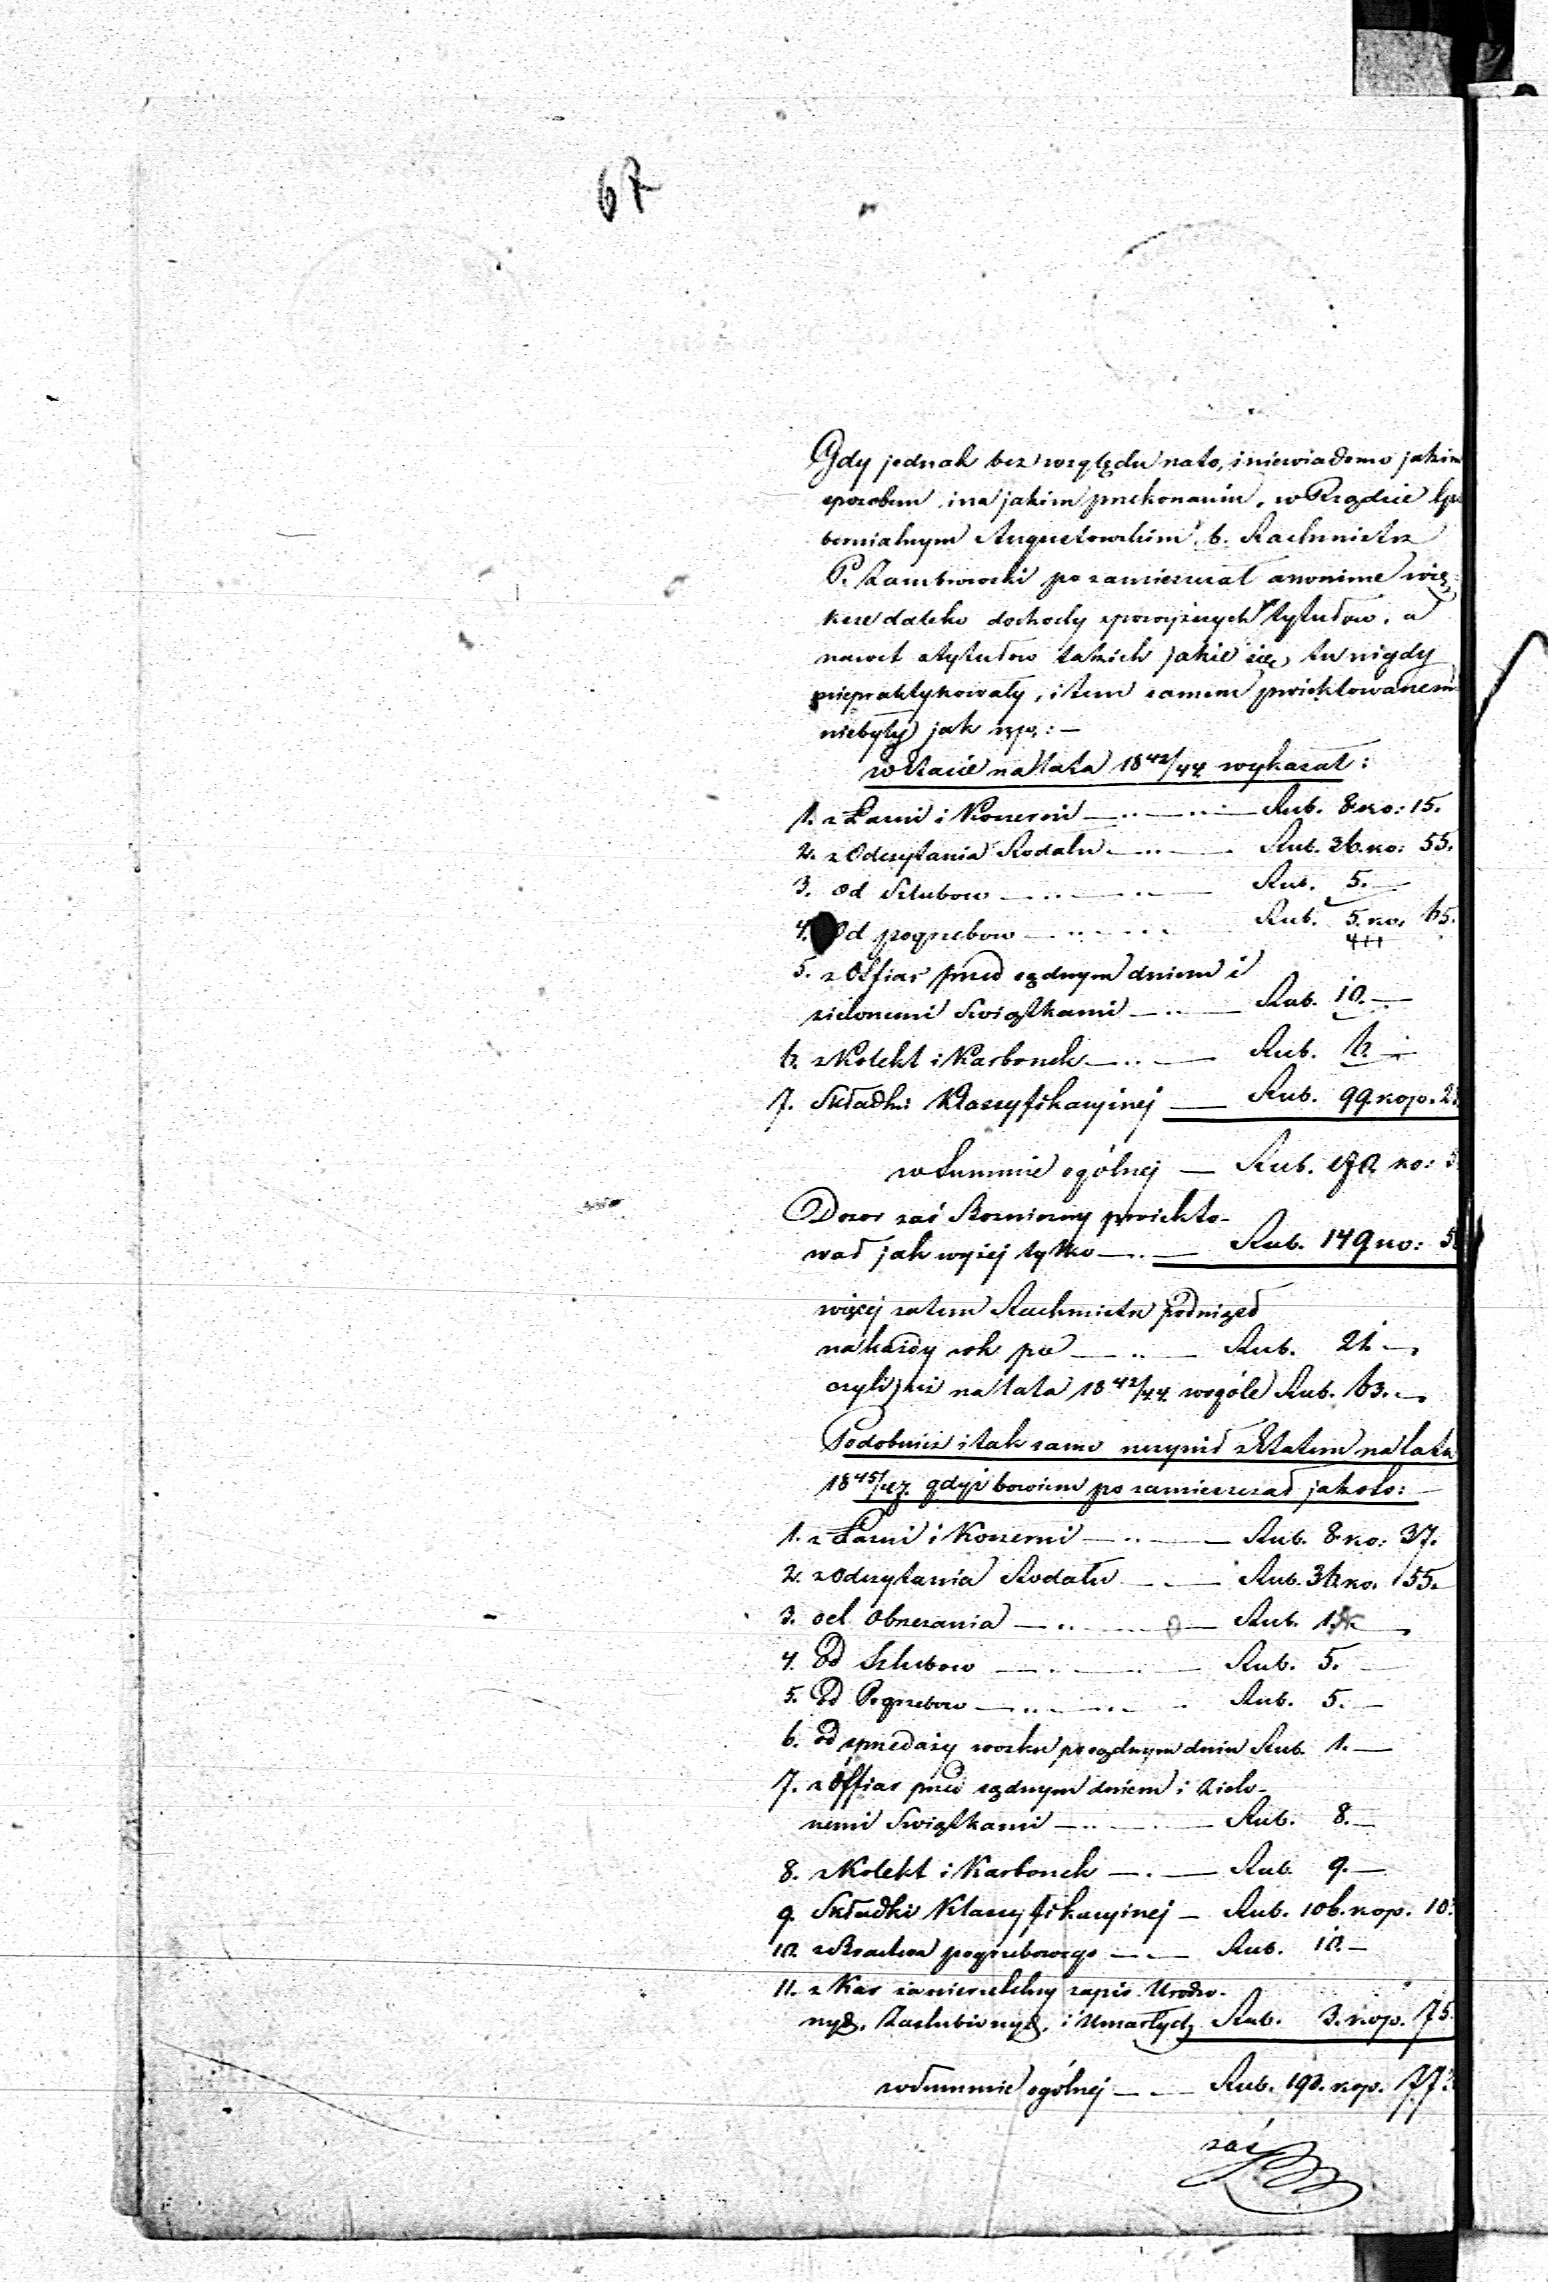 67
Gdy jednak bez względu nato, i niewiadomo jakim
sposobem, i na jakim przekonaniu, w Rządzie Gu
bernialnym Augustowskim b. Rachmistrz
P. Zambrowski pozamieszczał anonime więk
sze daleko dochody z powyższych tytułow, a
nawet z tytułow takich jakie się tu nigdy
niepraktykowały, i tem samem proiektowanemi
niebyły jak np.: —
w Etacie na lata 18 42/44 wykazał:
1. z Łazni i Koszerni — Rub. 8 ko: 15.
2. z Odczytania Rodału — Rub. 36. ko: 55.
3. od Szlubow — Rub. 5. —
4. Od pogrzebow — Rub. 5. ko. 65.
5. z Offiar przed sądnym dniem i
zielonemi Swiątkami — Rub. 10. —
6. z Kolekt i Karbonek — Rub. 6. —
7. Składki Klassyfikacyinej — Rub. 99. kop. 2
w Summie ogólnej — Rub. 170 ko: 5
Dozor zaś Bozniczny proiekto-
wał jak wyżej tylko — Rub. 149 ko: 5
więcej zatem Rachmistrz podniosł
na każdy rok po — Rub. 21. —
czyli już na lata 18 42/44 wogóle Rub. 63. —
Podobnież i tak samo uczynił z Etatem na lata
18 45/47. gdyż bowiem pozamieszczał jakoto:
1. z Łazni i Koszerni — Rub. 8 ko: 37.
2. z odczytania Rodału — Rub. 36 ko. 55.
3. od Obrzezania — Rub. 1. —
4. Od Szlubow — Rub. 5. —
5. Od Pogrzebow — Rub. 5. —
6. od sprzedaży wosku po sądnym dniu Rub. 1. —
7. z Offiar przed sądnym dniem i Zielo-
nemi Swiątkami — Rub. 8. —
8. z Kolekt i Karbonek — Rub. 9. —
9. Składki Klassyfikacyinej — Rub. 106. kop. 10
10. z Bractwa pogrzebowego — Rub. 10. —
11. z Kar za nierzetelny zapis Urodzo-
nych, Zaslubionych, i Umarłych Rub. 3. kop. 75
w Summie ogólnej — Rub. 193. kop. 77
zaś